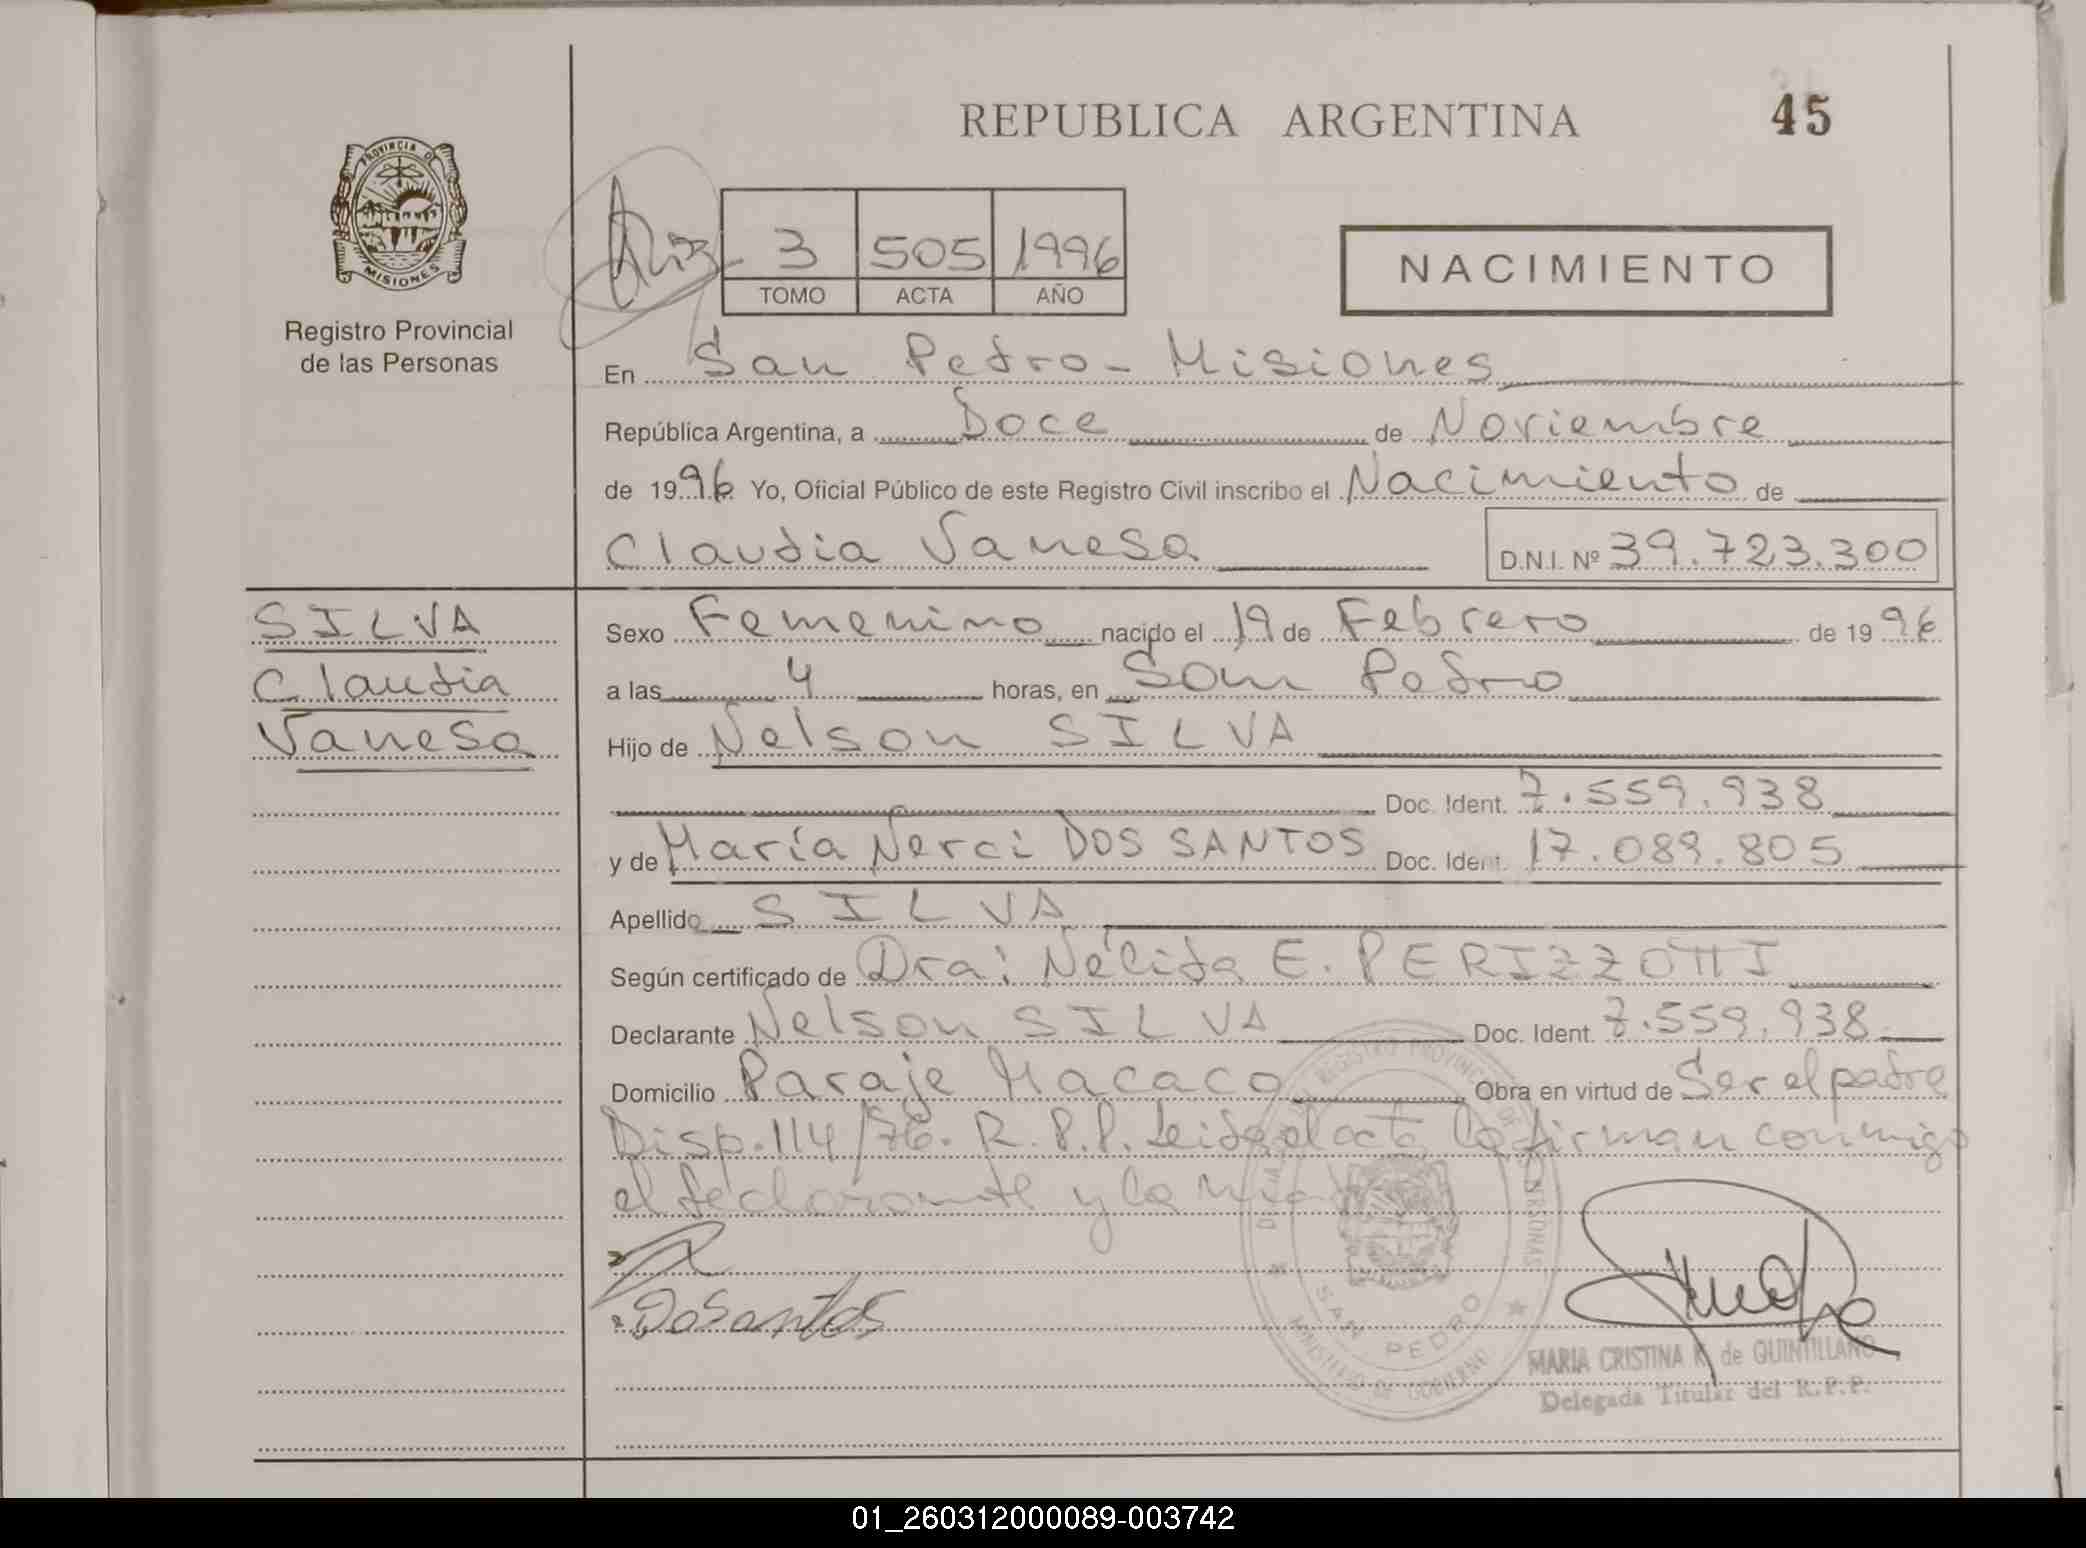 REPUBLICA ARGENTINA
45
PROVINCIA DE
MISIONES
Registro Provincial
de las Personas
3 505 1996
TOMO ACTA AÑO
NACIMIENTO
En San Pedro - Misiones
República Argentina, a Doce de Noviembre
de 1996 Yo, Oficial Público de este Registro Civil inscribo el Nacimiento de
Claudia Vanesa D.N.I. Nº 39.723.300
SILVA
Claudia
Vanesa
Sexo Femenino nacido el 19 de Febrero de 1996
a las 4 horas, en San Pedro
Hijo de Nelson SILVA
Doc. Ident. 7.559.938
y de María Nerci DOS SANTOS Doc. Ident. 17.089.805
Apellido SILVA
Según certificado de Dra: Nélida E. PERIZZOTTI
Declarante Nelson SILVA Doc. Ident. 7.559.938
Domicilio Paraje Macaco Obra en virtud de Ser el padre
Disp. 114/76. R.P.P. Leida el acta la firman conmigo
el declarante y la
DoSantos
REGISTRO PROVINCIAL DE LAS PERSONAS
SAN PEDRO
MINISTERIO DE GOBIERNO
MARIA CRISTINA K. de QUINTILLANO
Delegada Titular del R.P.P.
01_260312000089-003742